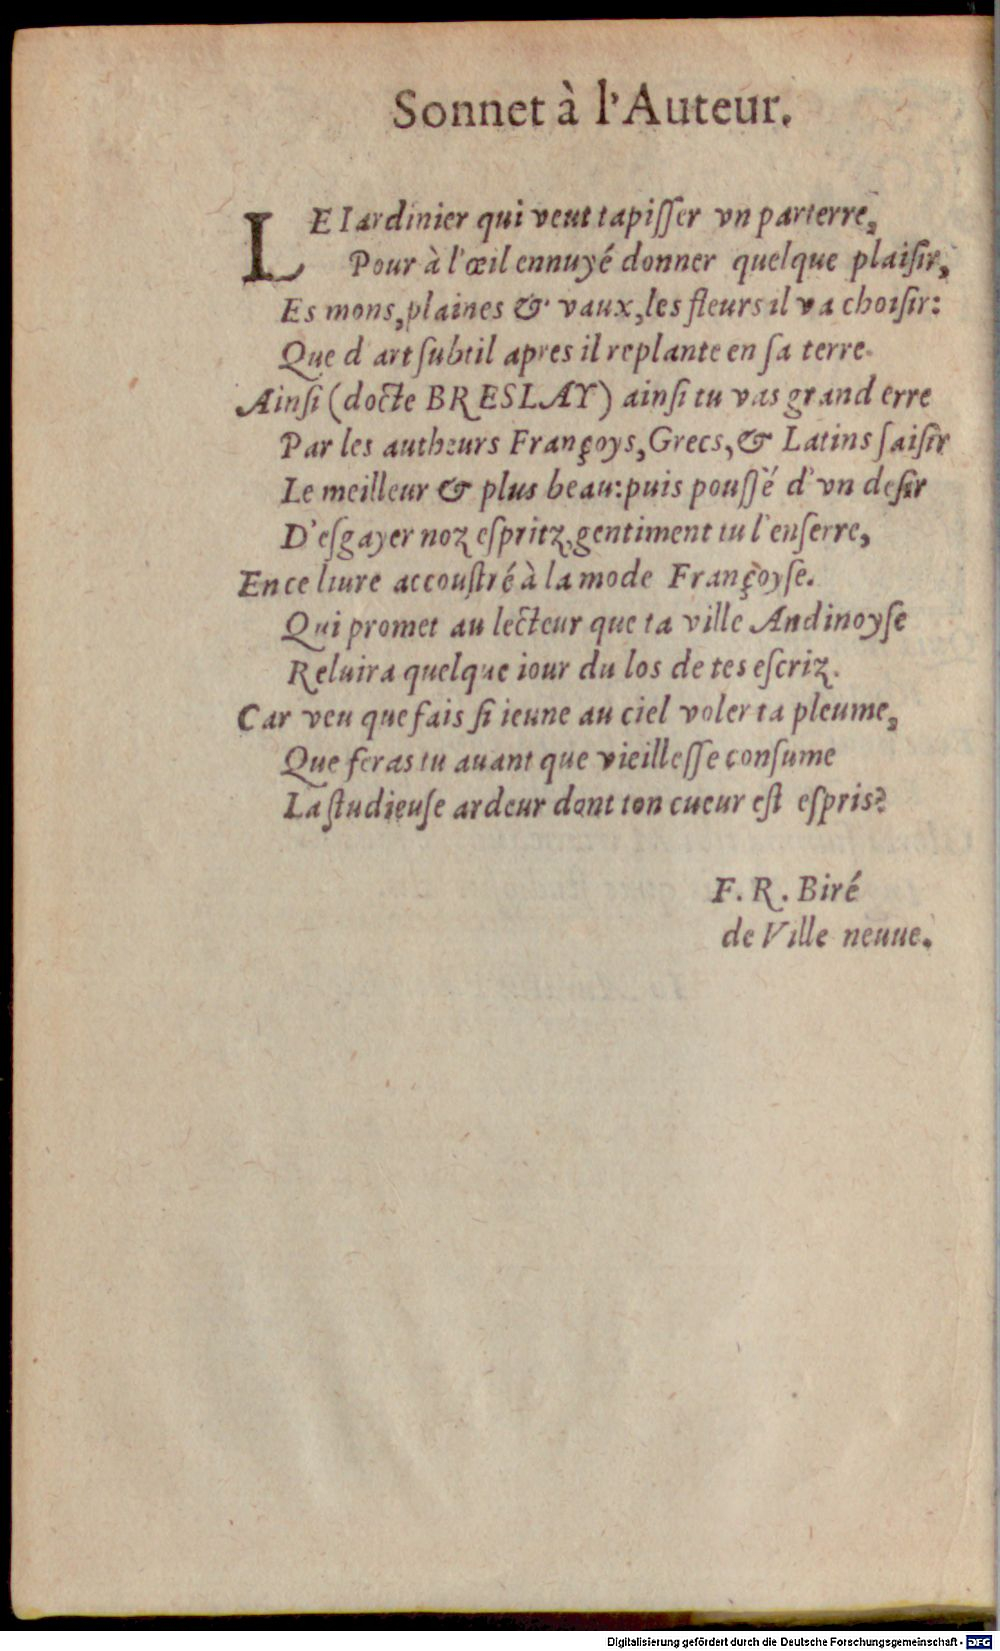 Sonnet à l'Auteur.
LE Iardinier qui veut tapiſſer vn parterre,
Pour à l'œil ennuyé donner quelque plaiſir,
Es mons, plaines & vaux, les fleurs il va choiſir:
Que d art ſubtil apres il replante en ſa terre.
Ainſi (docte BRESLAY) ainſi tu vas grand erre
Par les autheurs Françoys, Grecs, & Latins ſaiſir
Le meilleur & plus beau: puis pouſſé d'vn deſir
D'eſgayer noz eſpritz, gentiment tu l'enſerre,
En ce liure accouſtré à la mode Françoyſe.
Qui promet au lecteur que ta ville Andinoyſe
Reluira quelque iour du los de tes eſcriz.
Car veu que fais ſi ieune au ciel voler ta pleume,
Que feras tu auant que vieilleſſe conſume
La ſtudieuſe ardeur dont ton cueur eſt eſpris?
F. R. Biré
de Ville neuue.
Digitalisierung gefördert durch die Deutsche Forschungsgemeinschaft - DFG